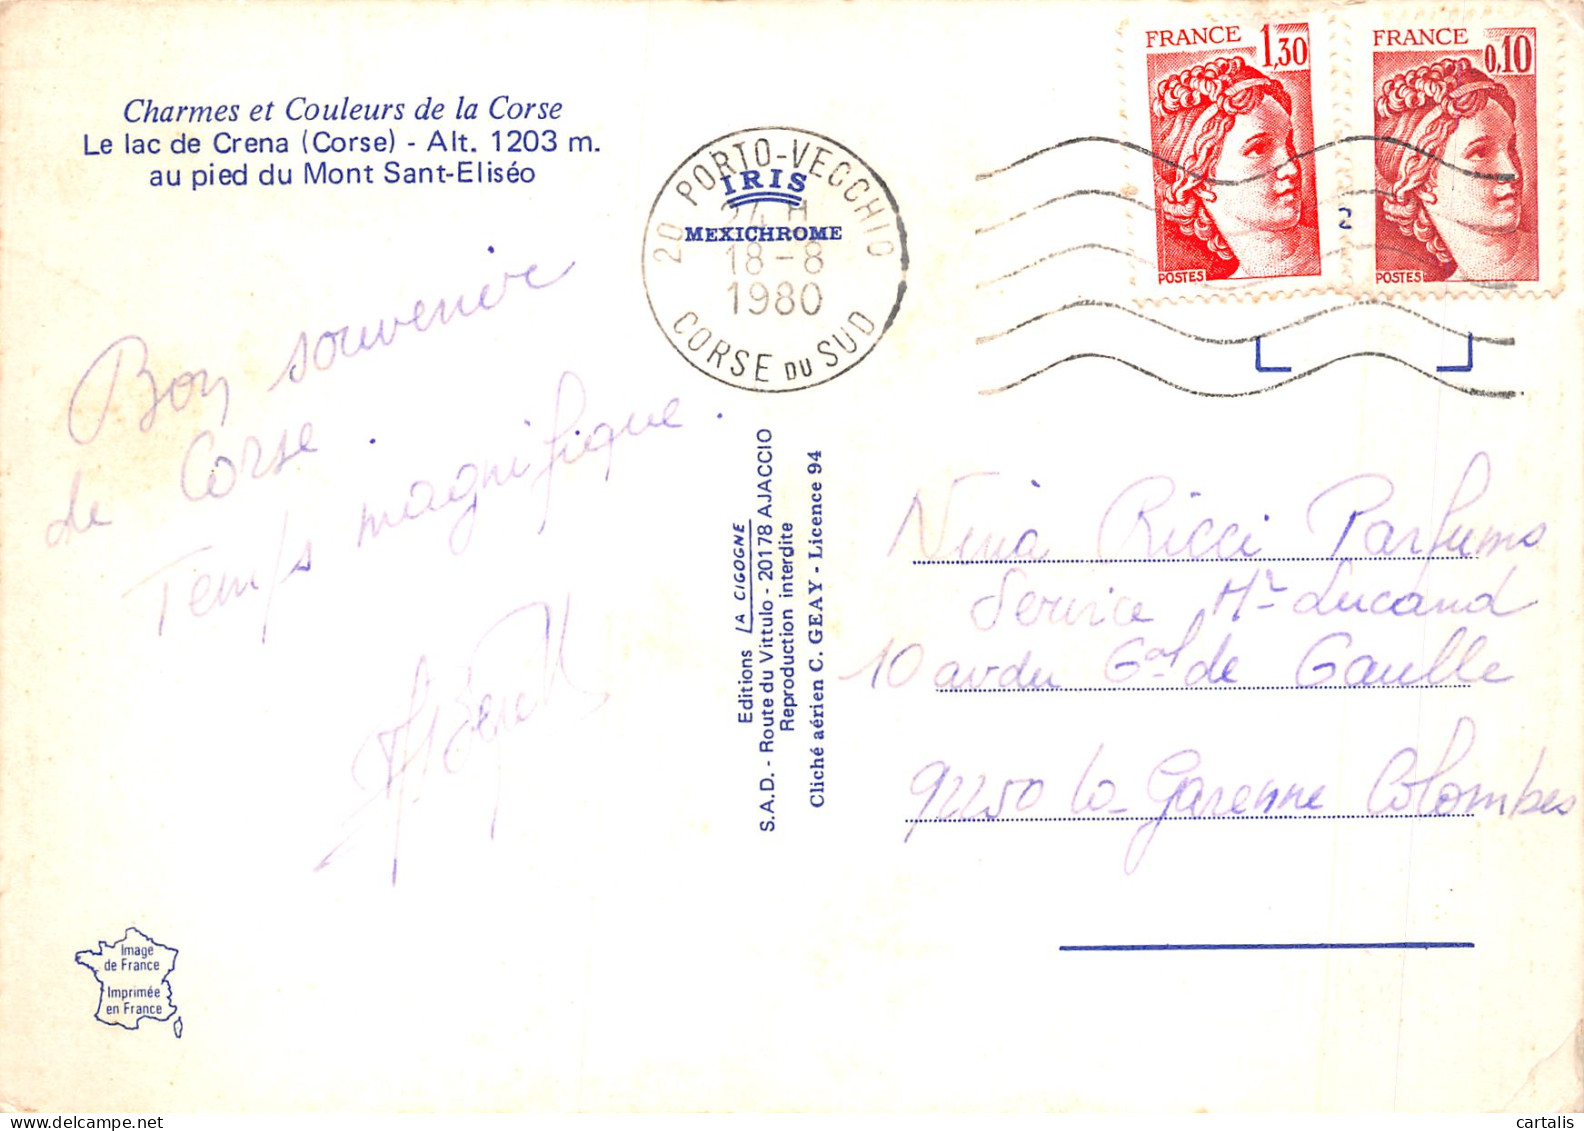 Charmes et Couleurs de la Corse
Le lac de Crena (Corse) - Alt. 1203 m.
au pied du Mont Sant-Eliséo
Bon souvenir
de Corse.
Temps magnifique.
Image
de France
Imprimée
en France
20 PORTO-VECCHIO
24 H
18-8
1980
CORSE DU SUD
IRIS
MEXICHROME
Editions LA CIGOGNE
S.A.D. - Route du Vittulo - 20178 AJACCIO
Reproduction interdite
Cliché aérien C. GEAY - Licence 94
FRANCE
1,30
POSTES
FRANCE
0,10
POSTES
2
Nina Ricci Parfums
Service Mr Lucand
10 av du Gal de Gaulle
92250 La Garenne Colombes
cartalis